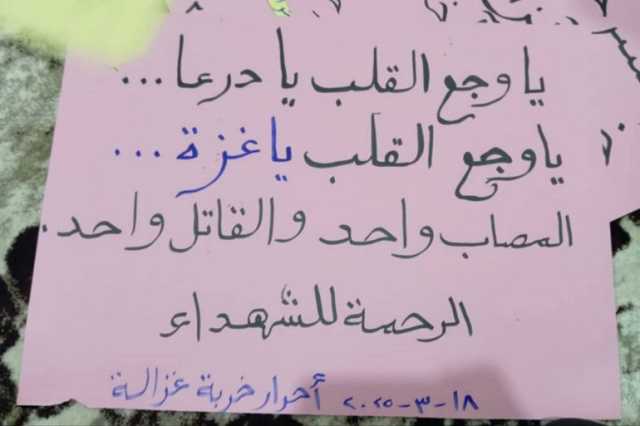 يا وجع القلب يا درعا...
يا وجع القلب يا غزة...
المصاب واحد والقاتل واحد.
الرحمة للشهداء
١٨-٣-٢٠٢٥ أحرار خربة غزالة